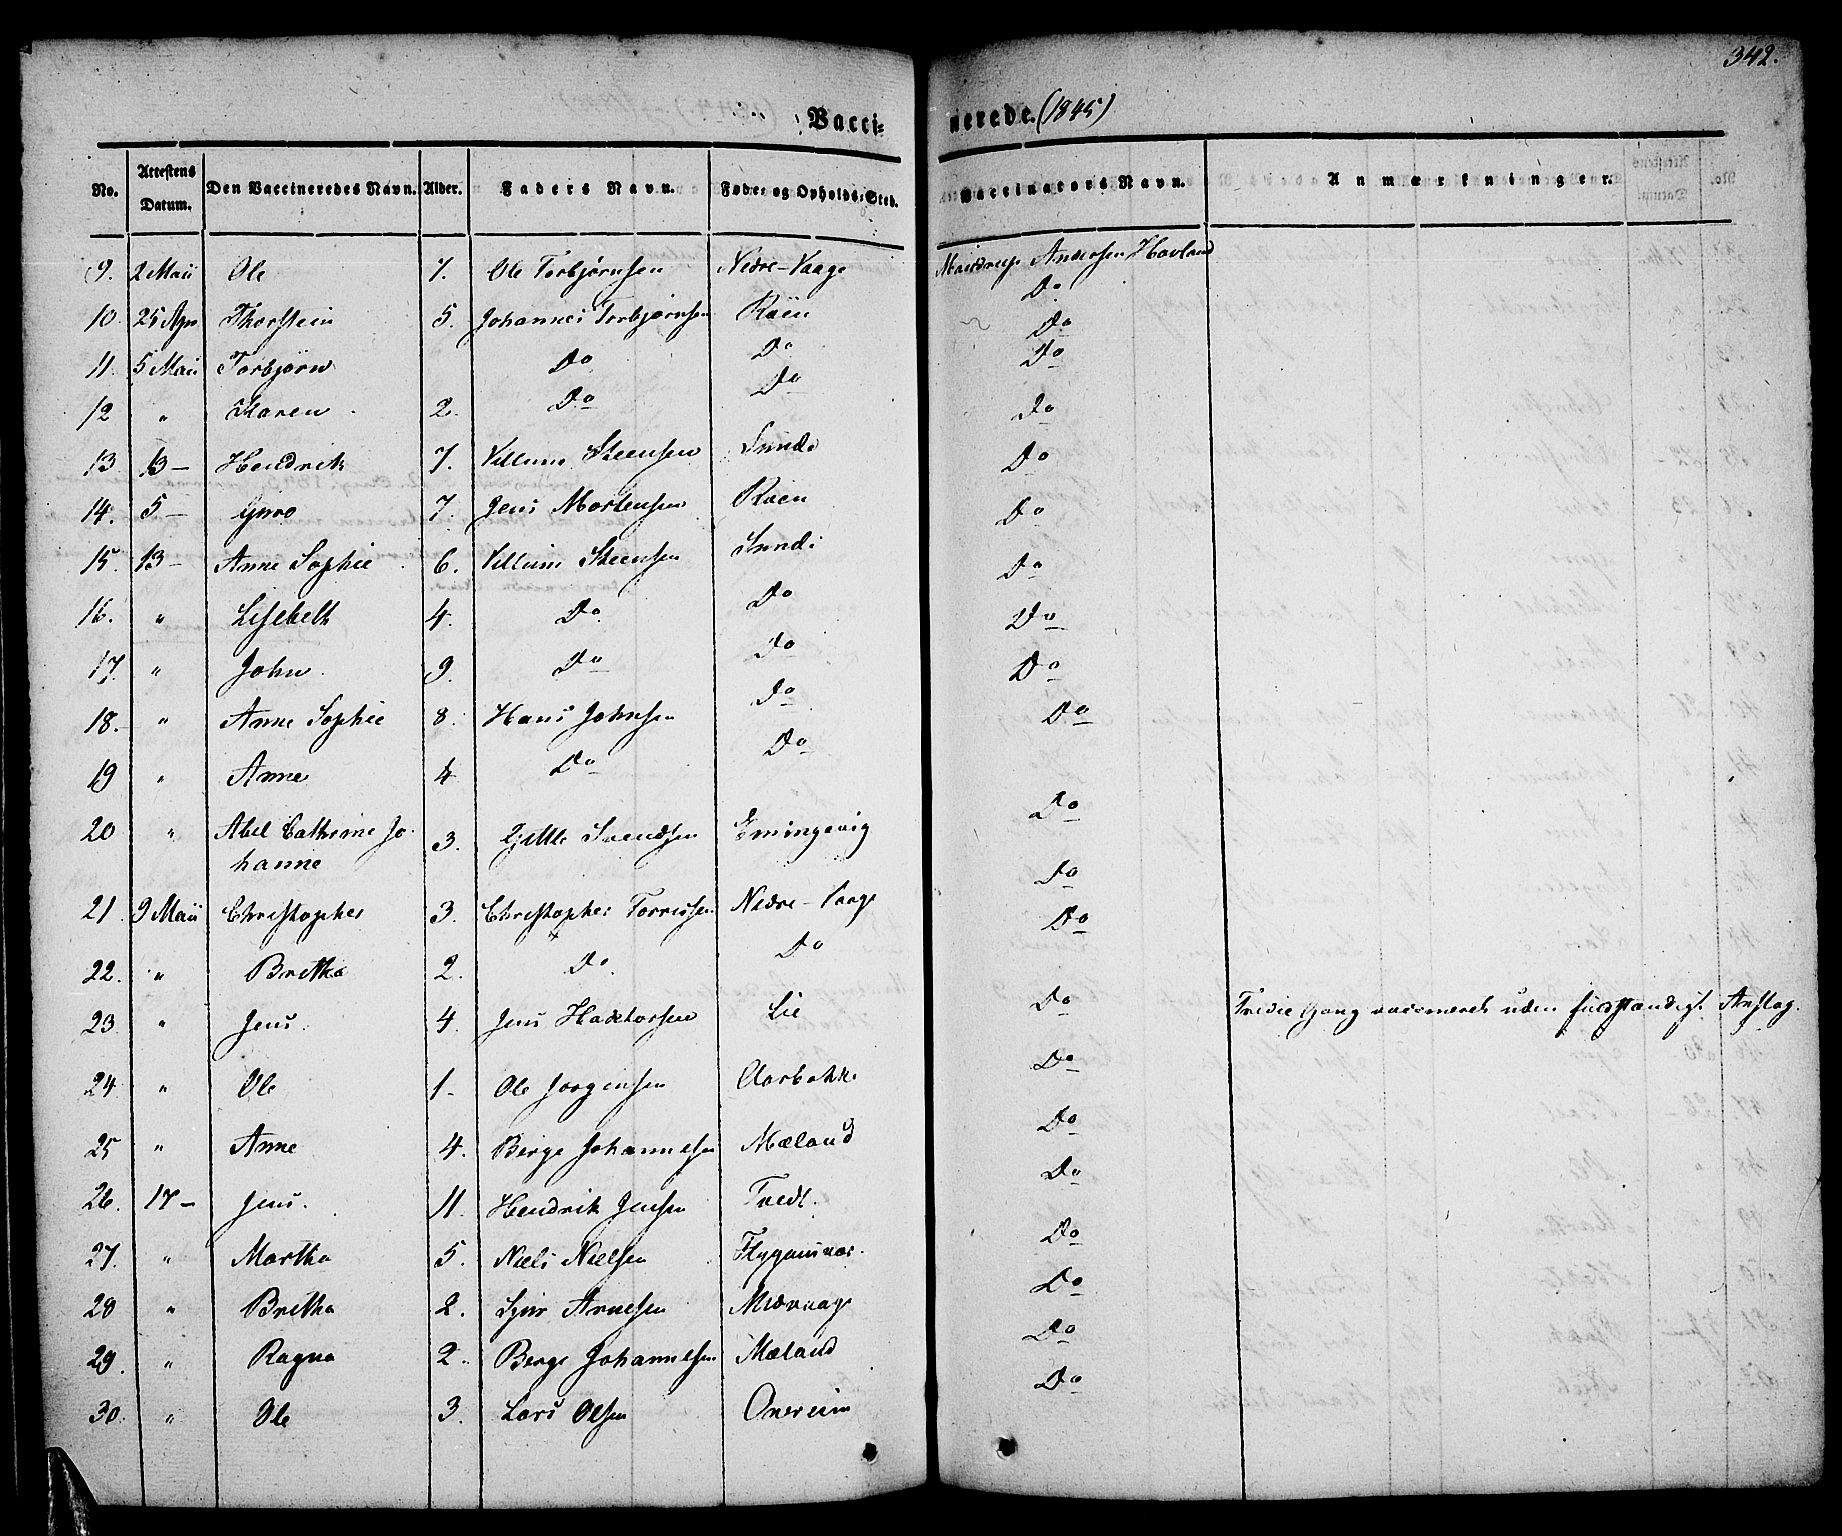 342.
Vacci= nerede. (1845)
No. | Attestens Datum. | Den Vaccineredes Navn. | Alder. | Faders Navn. | Føde- og Opholds-Sted. | Vaccinators Navn. | Anmærkninger.
9. 2 Maii Ole 7. Ole Torbjørnsen Nedre-Vaage Andersen Hovland
Do
10. 25 Apr Thorstein 5. Johannes Torbjørnsen Røen Do
11. 5 Maii Torbjørn Do Do Do
12 " Karen 2. Do Do Do
13 13 – Hendrik 7. Villum Steensen Sunde Do
14. 5 – Guro 7. Jens Mortensen Røen Do
15. 13 – Anne Sophie 6. Villum Steensen Sunde Do
16. " Lisebeth 4. Do Do Do
17. " John 9. Do Do Do
18. " Anne Sophie 8. Hans Johnsen Do Do
19 " Anne 4 Do Do
20 " Abel Cathrine Jo- 3. Svendsen Do
hanne
Do
21. 9 Maii Christopher 3. Christopher Torresen Nedre-Vaage Do
22. " Britha 2. Do Do
23. " Jens 4. Jens Lie Do Tredie Gang vaccineret uden fuldstændigt Anslag.
24. " Ole 1- Ole Jørgensen Aarbakke Do
25 " Anne 4. Berge Johannesen Mæland Do
26. 17 – Jens. 11. Hendrik Jensen Tvedt. Do
27. " Martha 5. Niels Nielsen Do
28 " Britha 2. Arnesen Do
29. " Ragna 2. Berge Johannesen Mæland Do
30. " Ole 3. Lars Olsen Do